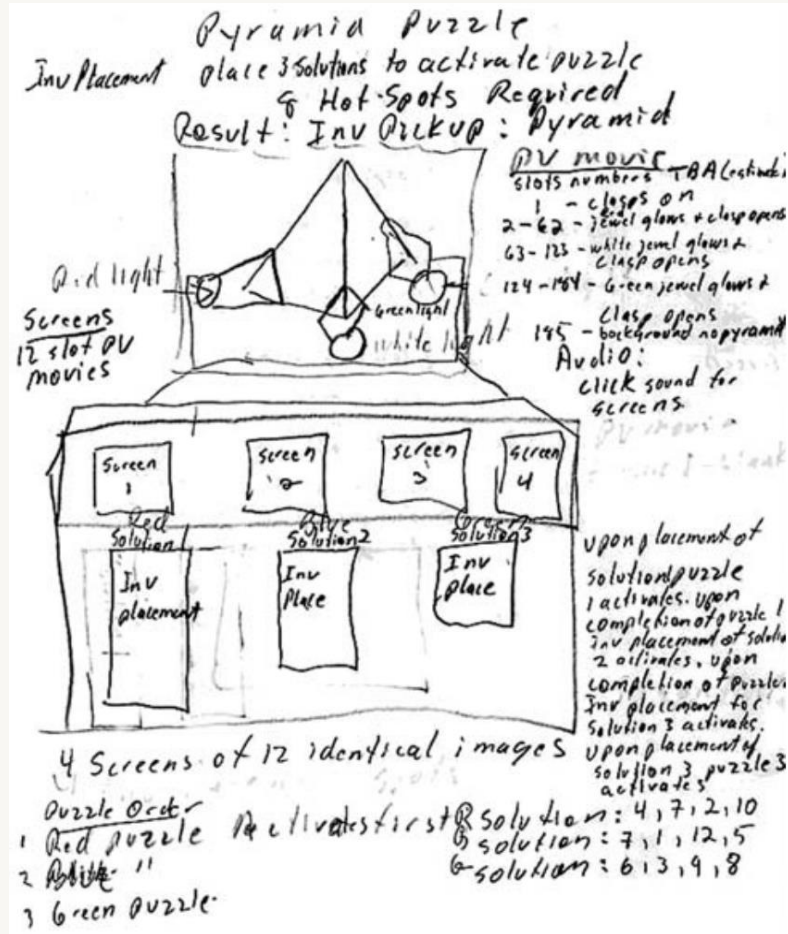 Pyramid Puzzle
Inv Placement
place 3 solutions to activate puzzle
8 Hot-Spots Required
Result: Inv Pickup: Pyramid
PV movie
slots numbers TBA
1 - clasps on
2-62 - jewel glows & clasp opens
63-123 - white jewel glows &
clasp opens
124-184 - Green jewel glows &
clasp opens
185 - background no pyramid
Audio:
click sound for
screens
Red light
Green light
white light
Screens
12 slot PV
movies
Screen
1
screen
2
screen
3
screen
4
Red
Solution 1
Blue
Solution 2
Green
Solution 3
Inv
placement
Inv
Place
Inv
place
upon placement of
solution 1 puzzle
1 activates. upon
completion of puzzle 1
inv placement of solution
2 activates. upon
completion of puzzle
Inv placement for
solution 3 activates.
upon placement of
solution 3 puzzle 3
activates
4 Screens of 12 identical images
Puzzle Order
1 Red puzzle activates first
2 "
3 Green Puzzle
R solution: 4, 7, 2, 10
B solution: 7, 1, 12, 5
G solution: 6, 3, 9, 8